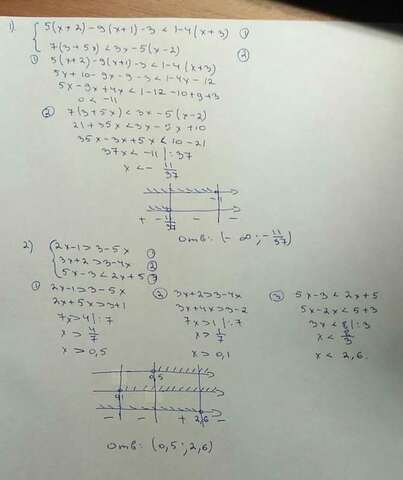 1) { 5(x+2)-9(x+1)-3<1-4(x+3) ①
7(3+5x)<3x-5(x-2) ②
① 5(x+2)-9(x+1)-3<1-4(x+3)
5x+10-9x-9-3<1-4x-12
5x-9x+4x<1-12-10+9+3
0<-11
② 7(3+5x)<3x-5(x-2)
21+35x<3x-5x+10
35x-3x+5x<10-21
37x<-11 |:37
x<-11/37
-11
+ -11/37 - -
Отв: (-∞; -11/37)
2) { 2x-1>3-5x ①
3x+2>3-4x ②
5x-3<2x+5 ③
① 2x-1>3-5x ② 3x+2>3-4x ③ 5x-3<2x+5
2x+5x>3+1 3x+4x>3-2 5x-2x<5+3
7x>4 |:7 7x>1 |:7 3x<8 |:3
x>4/7 x>1/7 x<8/3
x>0,5 x>0,1 x<2,6.
0,5
0,1
- - + 2,6 -
Отв: (0,5; 2,6)